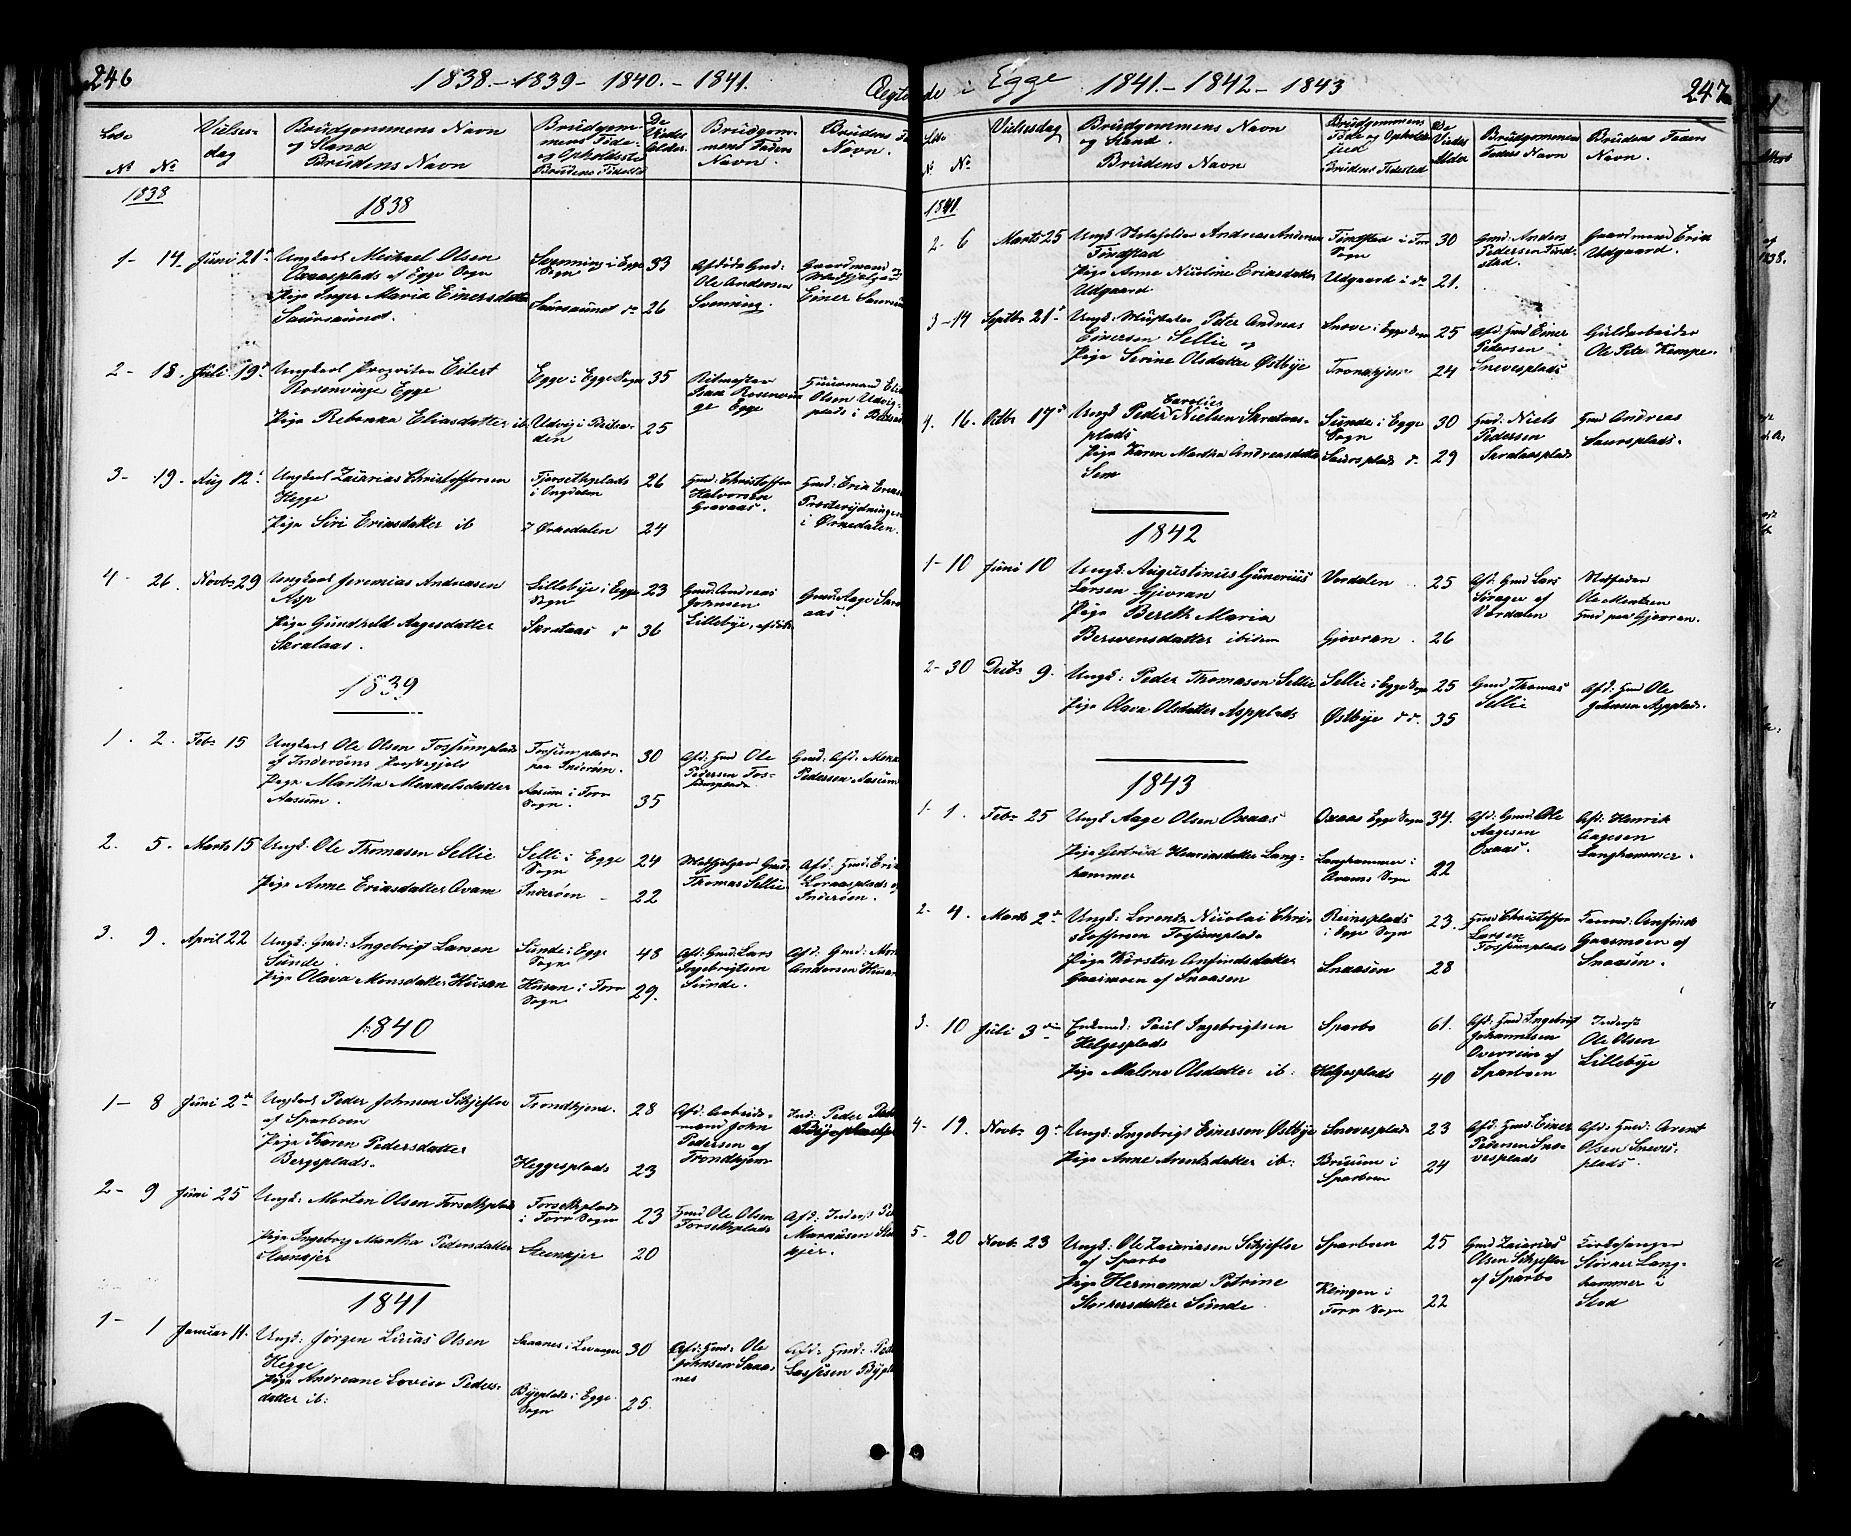 246
1838.-1839-1840.-1841.
Løbe
№ №
Vielses-
dag
Brudgommens Navn
og Stand
Brudens Navn
Brudgom-
mens Føde-
og Opholdssted
Brudens Fødested
De
Viedes
Alder.
Brudgom-
mens Faders
Navn.
Brudens Fa
Navn.
1838
1838
1- 14. Juni 21de
Ungkarl Michael Olsen
Oxaasplads af Egge Sogn
Pige Inger Maria Einersdatter
Saursaunet.
Svenning i Egge
Sogn
Saursaunet do
33
26
Afdøde Gmd:
Ole Andersen
Svenning.
Gaardmand og
Medhjelper
Einer Saursau
2- 18. Juli 19de
Ungkarl Proprietær Eilert
Rosenvinge Egge
Pige Rebekka Eliasdatter ib
Egge i Egge Sogn
35
25
Ritmester
Isaac Rosenvin
ge Egge
Huusmand Elia
Olsen Udvig-
plads i
3- 19. Aug 12te
Ungkarl Zacarias Christoffersen
Hegge
Pige Siri Eriksdatter ib
i Ongdalen
i Ørkedalen
26
24
Gmd: Christoffer
Halvorsen
Gravaas.
Gmd: Erik Erik
i Ørkedalen.
4- 26. Novbr 29
Ungkarl Jeremias Andreasen
Asp
Pige Gundhild Aagesdatter
Skrataas.
Lillebye i Egge
Sogn
Skrataas do
23
36
Gmd Andreas
Johnsen
Lillebye, afdøde
Gmd Aage Skra
aas.
1839
1. 2. Febr 15
Ungkarl Ole Olsen Fossumplads
af Inderøens Præstegjeld
Pige Martha Mikkelsdatter
Aasum.
Fossumplads
paa Inderøen.
Aasum i For
Sogn.
30
35
Afd: Hmd Ole
Pedersen Fos-
sumplads.
Gmd: Afd: Mikk
Pedersen Aasum
2. 5. Marts 15
Ungk: Ole Thomasen Sellie
Pige Anne Eriksdatter Qvam
Selli i Egge
Sogn
Inderøen
24
22
Medhjelper Gmd:
Thomas Sellie
Afd: Hmd: Erik
Inderøen.
3. 9. April 22
Ungk: Gmd: Ingebrigt Larsen
Sunde.
Pige Olava Monsdatter Husan
Sunde i Egge
Sogn
Husan i For
Sogn
48
29.
Afd: Gmd: Lars
Ingebrigtsen
Sunde.
Afd: Gmd: Mon
Andersen Husan
1840
1- 8 Juni 2de
Ungkarl Peder Johnsen Skjefloe
af Sparboen
Pige Karen Pedersdatter
Bergsplads.
Trondhjem.
Heggesplads
28
23
Afd: Arbeids-
mand John
Pedersen af
Trondhjem
Hmd: Peder Pede
Byeplads
2- 9 Juni 25
Ungk: Morten Olsen Forsethplads
Pige Ingeborg Martha Pedersdatter
Steenkjer
Forsethplads
i For Sogn
Steenkjer
23
20
Hmd Ole Olsen
Forsethplads
Afd: Inderst Pe
Markusen Ste
kjer.
1841
1- 1 Januar 11.
Ungk: Jørgen Lucas Olsen
Hegge
Pige Andreane Lovise Peders-
datter ib:
Skaanes i Levanger
Byeplads i Egge
Sogn
30
25.
Afd: Hmd: Ole
Johnsen Skaa-
nes
Afd: Hmd: Pede
Lassesen Byepl
Ægtevi
de i Egge 1841.-1842-1843
247
Løbe
№ №
Vielsesdag
Brudgommens Navn
og Stand.
Brudens Navn
Brudgommens
Føde og Opholds
sted
Brudens Fødested
De
Viedes
Alder
Brudgommens
Faders Navn
Brudens Faders
Navn.
1841.
2- 6 Marts 25
Andreas Andersen
Tindstad
Pige Anne Nicoline Eriksdatter
Udgaard
Tindstad i For
Sogn
Udgaard i do
30
21.
Gmd: Anders
Pedersen Tind-
stad.
Gaardmand Erik
Udgaard.
3- 14 Septbr 21de
Peter Andreas
Einersen Sellie og
Pige Serine Olsdatter Østbye
Sneve i Egge Sogn
Trondhjem
25
24
Afd: Hmd Einer
Pedersen
Snevesplads
Guldarbeider
Ole Peter Kempe.
4. 16. Octbr 17de
Carelius
Ungk Peder Nielsen Skrataas-
plads
Pige Karen Martha Andreasdatter
Sem
Sunde i Egge
Sogn
Saursplads do
30
29
Gmd: Niels
Pedersen
Skrataasplads
Hmd Andreas
Saursplads.
1842
1- 10 Juni 10
Ungk: Augustinus Gunerius
Larsen Gjevran
Pige Bereth Maria
Berwensdatter ibidem
Verdalen
Gjevran.
25
26
Afd: Hmd Lars
af
Verdalen
Stedfader
Ole Mentzen
Hmd paa Gjevran.
2- 30 Decbr 9.
Ungk: Peder Thomasen Sellie
Pige Olava Olsdatter Aspplads
Sellie i Egge Sogn
Østbye do do.
25
35
Gmd Thomas
Sellie
Afd: Hmd Ole
Johnsen Aspplads.
1843
1- 1. Febr 25
Ungk Aage Olsen Oxaas
Pige Gertrud Henriksdatter Lang-
hammer
Oxaas Egge Sogn
Langhammer i
Qvams Sogn
34.
22
Afd: Gmd: Ole
Aagesen
Oxaas.
Afd: Henrik
Aagesen
Langhammer.
2- 4. Marts 2de
Ungk: Lorentz Nicolai Chri-
stoffersen Fossumplads
Pige Kirsten Arnfindsdatter
af Snaasen
Reinsplads
i Egge Sogn
Snaasen
23.
28
Hmd Christoffer
Larsen
Fossumplads
Arnfind
af
Snaasen.
3. 10 Juli 3die
Enkemd: Paul Ingebrigtsen
Helgesplads
Pige Malene Olsdatter ib:
Sparbo
Helgesplads
61.
40
Afd: Hmd Ingebrigt
Johannesen
Overrein af
Sparboen
Inderst
Ole Olsen
Lillebye
4- 19. Novbr 9de
Ungk: Ingebrigt Einersen Østbye
Pige Anne Arentsdatter ib:
Snevesplads
Bruum i
Sparboen
23
24
Afd: Hmd: Einer
Pedersen Sne-
vesplads
Afd: Hmd: Arent
Olsen Sneves-
plads.
5- 20 Novbr 23
Ungk: Ole Zacariasen Skjefloe
af Sparbo
Pige Hermanna Petrine
Størkersdatter Sunde
Sparboen
Klingen i
For Sogn
25
22
Gmd Zacarias
Olsen Skjefloe
af Sparbo
Kirkesanger
Størker Lang-
hammer i
Stod